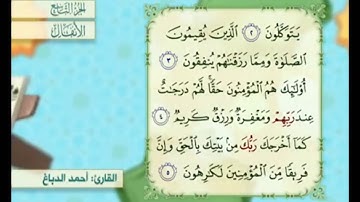 الجزء التاسع
الأنفال
يَتَوَكَّلُونَ ٢ ٱلَّذِينَ يُقِيمُونَ
ٱلصَّلَوٰةَ وَمِمَّا رَزَقْنَٰهُمْ يُنفِقُونَ ٣
أُوْلَٰٓئِكَ هُمُ ٱلْمُؤْمِنُونَ حَقًّا ۚ لَّهُمْ دَرَجَٰتٌ
عِندَ رَبِّهِمْ وَمَغْفِرَةٌ وَرِزْقٌ كَرِيمٌ ٤
كَمَآ أَخْرَجَكَ رَبُّكَ مِنۢ بَيْتِكَ بِٱلْحَقِّ وَإِنَّ
فَرِيقًا مِّنَ ٱلْمُؤْمِنِينَ لَكَٰرِهُونَ ٥
القارئ: أحمد الدباغ